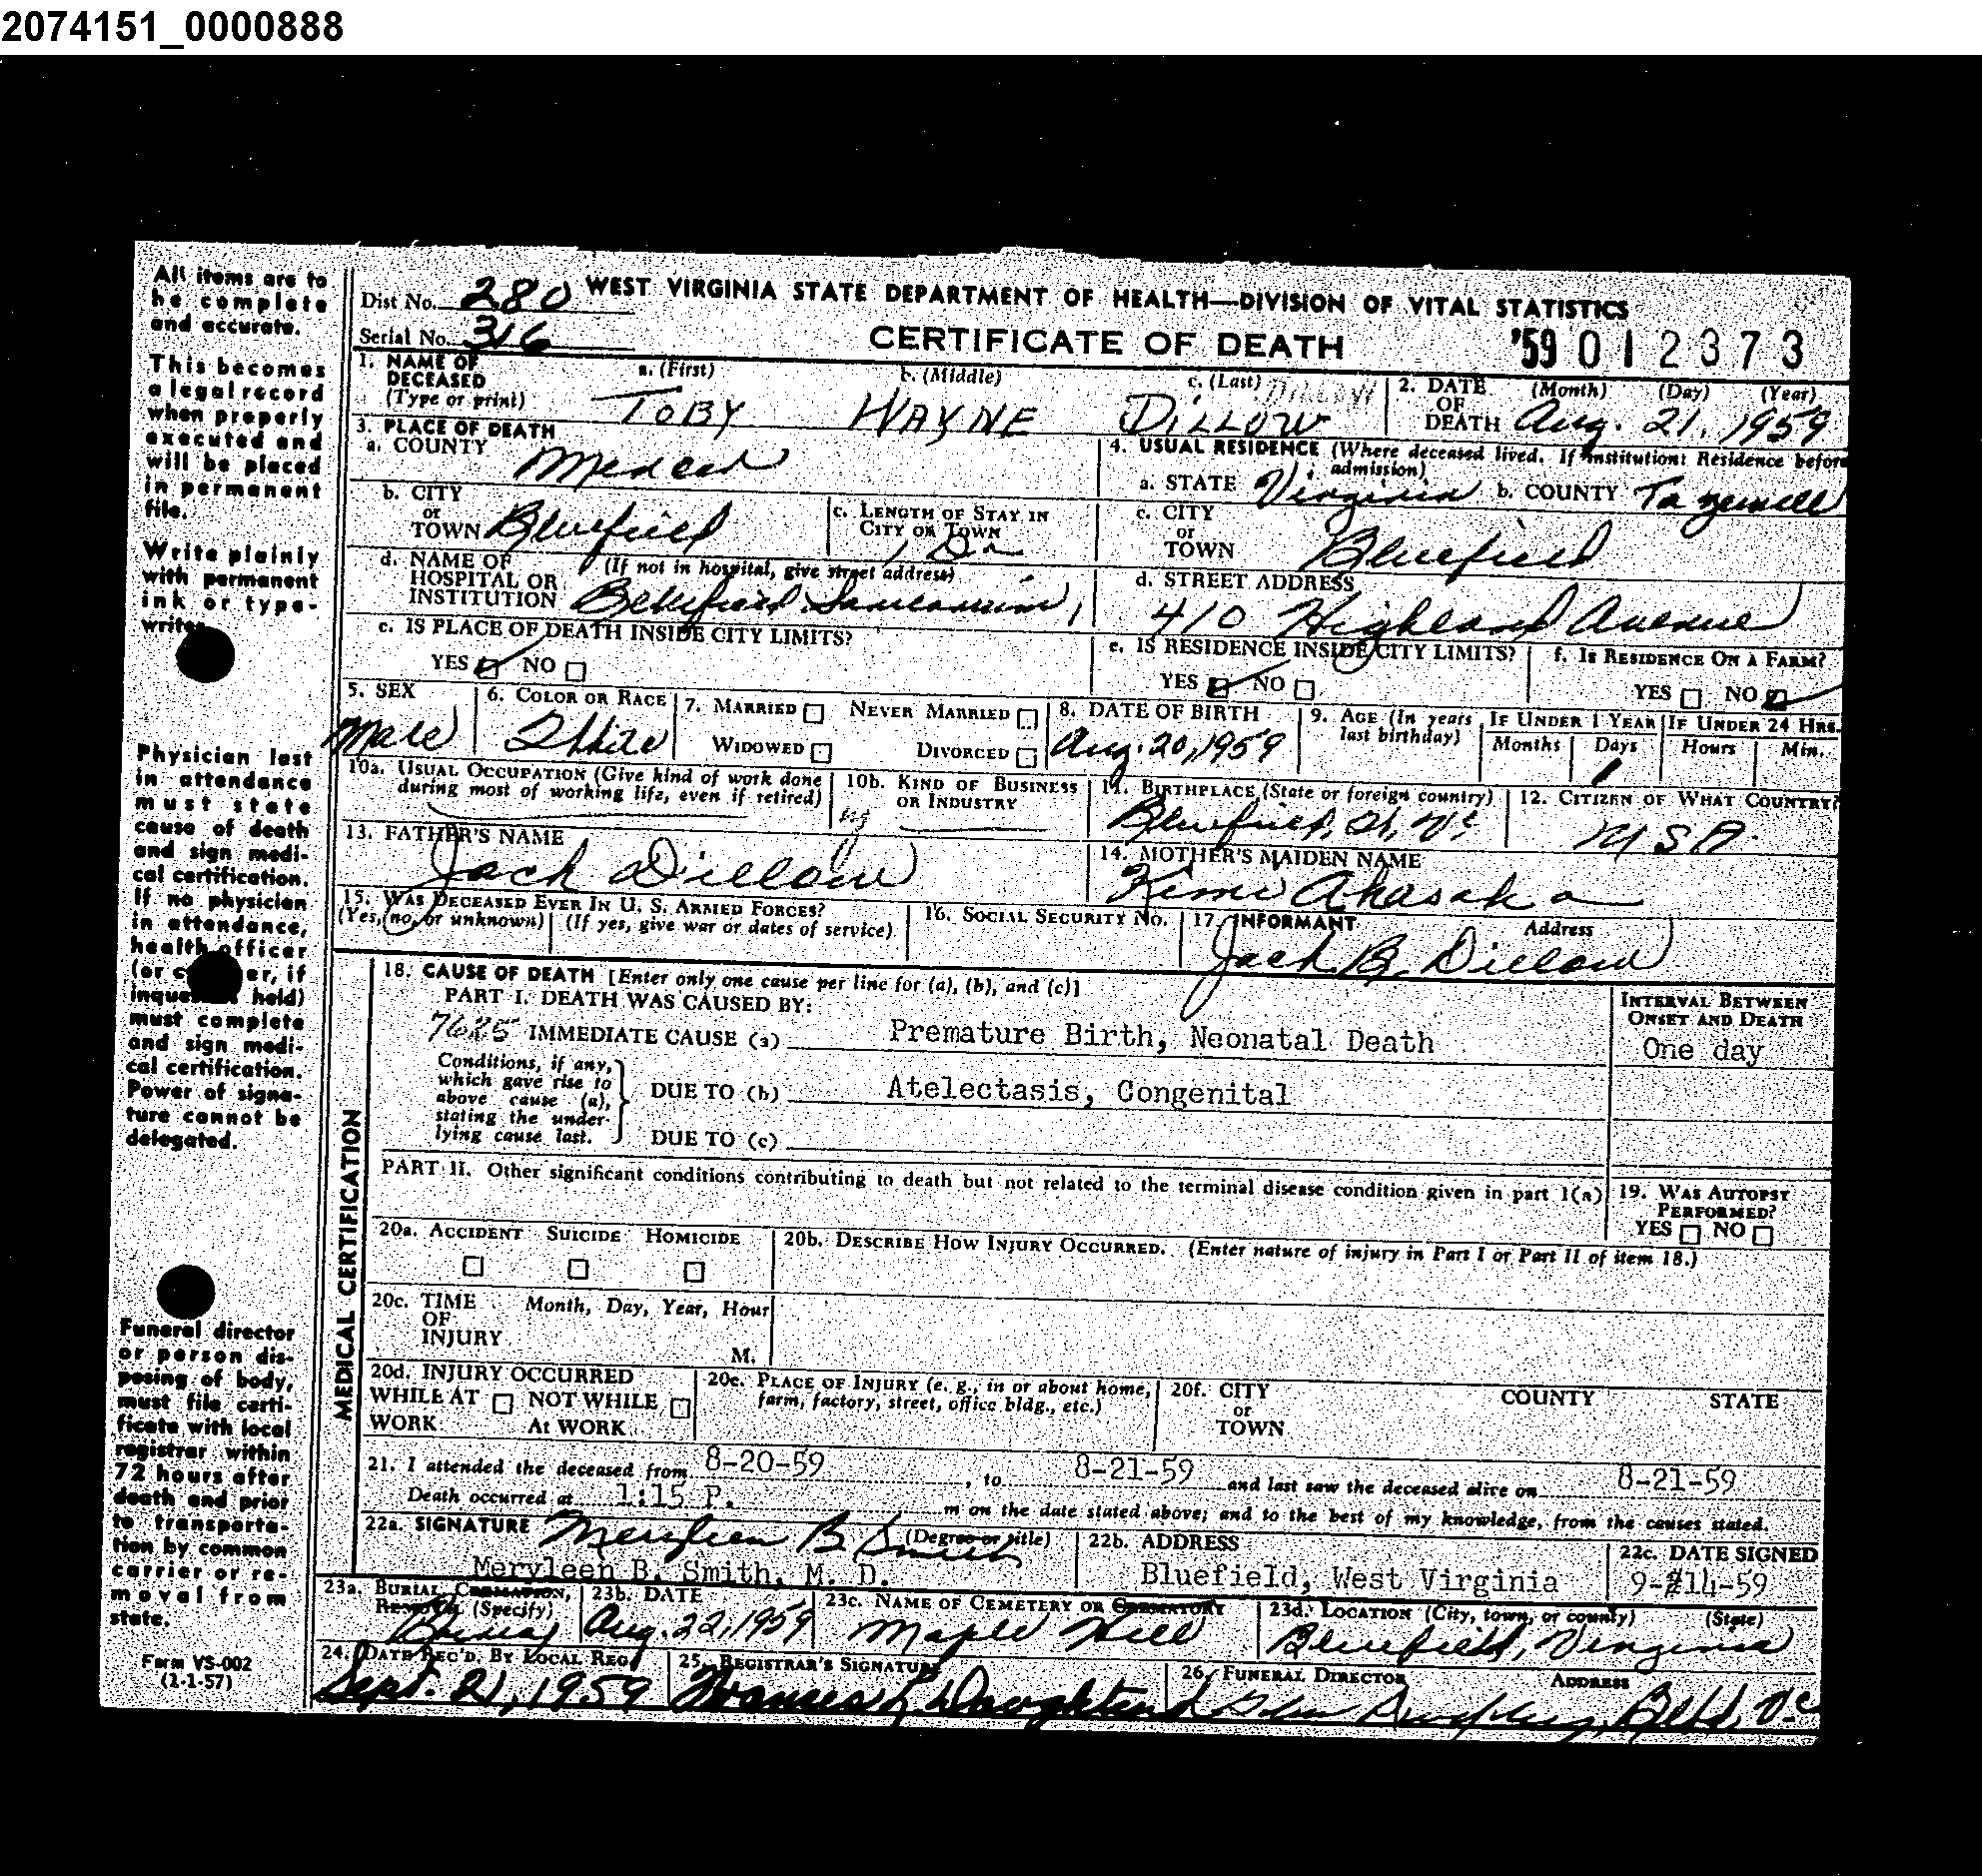 2074151_0000888
All items are to
be complete
and accurate.
This becomes
a legal record
when properly
executed and
will be placed
in permanent
file.
Write plainly
with permanent
ink or type-
writer
Physician last
in attendance
must state
cause of death
and sign medi-
cal certification.
If no physician
in attendance,
health officer
(or c er, if
inquest held)
must complete
and sign medi-
cal certification.
Power of signa-
ture cannot be
delegated.
Funeral director
or person dis-
posing of body,
must file certi-
ficate with local
registrar within
72 hours after
death and prior
to transporta-
tion by common
carrier or re-
moval from
state.
Form VS-002
(1-1-57)
Dist No. 280 WEST VIRGINIA STATE DEPARTMENT OF HEALTH—DIVISION OF VITAL STATISTICS
Serial No. 316 CERTIFICATE OF DEATH '59 012373
1. NAME OF DECEASED (Type or print) a. (First) b. (Middle) c. (Last) DILLOW
TOBY WAYNE DILLOW
2. DATE OF DEATH (Month) (Day) (Year)
Aug. 21, 1959
3. PLACE OF DEATH
a. COUNTY Mercer
4. USUAL RESIDENCE (Where deceased lived. If institution: Residence before admission)
a. STATE Virginia b. COUNTY Tazewell
b. CITY or TOWN Bluefield
c. LENGTH OF STAY IN CITY OR TOWN 1 Da
c. CITY or TOWN Bluefield
d. NAME OF HOSPITAL OR INSTITUTION (If not in hospital, give street address)
Bluefield Sanitarium
d. STREET ADDRESS
410 Highland Avenue
e. IS PLACE OF DEATH INSIDE CITY LIMITS?
YES NO
e. IS RESIDENCE INSIDE CITY LIMITS?
YES NO
f. IS RESIDENCE ON A FARM?
YES NO
5. SEX
Male
6. COLOR OR RACE
White
7. MARRIED NEVER MARRIED
WIDOWED DIVORCED
8. DATE OF BIRTH
Aug. 20, 1959
9. AGE (In years last birthday)
IF UNDER 1 YEAR IF UNDER 24 HRS.
Months Days Hours Min.
1
10a. USUAL OCCUPATION (Give kind of work done during most of working life, even if retired)
10b. KIND OF BUSINESS OR INDUSTRY
11. BIRTHPLACE (State or foreign country)
Bluefield, W. Va.
12. CITIZEN OF WHAT COUNTRY?
USA
13. FATHER'S NAME
Jack Dillow
14. MOTHER'S MAIDEN NAME
Kimi Akasaka
15. WAS DECEASED EVER IN U. S. ARMED FORCES?
(Yes, no, or unknown) (If yes, give war or dates of service)
16. SOCIAL SECURITY NO.
17. INFORMANT Address
Jack B. Dillow
MEDICAL CERTIFICATION
18. CAUSE OF DEATH [Enter only one cause per line for (a), (b), and (c)]
INTERVAL BETWEEN ONSET AND DEATH
PART I. DEATH WAS CAUSED BY:
7625 IMMEDIATE CAUSE (a) Premature Birth, Neonatal Death One day
Conditions, if any, which gave rise to above cause (a), stating the under-lying cause last.
DUE TO (b) Atelectasis, Congenital
DUE TO (c)
PART II. Other significant conditions contributing to death but not related to the terminal disease condition given in part I(a)
19. WAS AUTOPSY PERFORMED?
YES NO
20a. ACCIDENT SUICIDE HOMICIDE
20b. DESCRIBE HOW INJURY OCCURRED. (Enter nature of injury in Part I or Part II of item 18.)
20c. TIME OF INJURY Month, Day, Year, Hour
M.
20d. INJURY OCCURRED
WHILE AT WORK NOT WHILE At WORK
20e. PLACE OF INJURY (e. g., in or about home, farm, factory, street, office bldg., etc.)
20f. CITY or TOWN COUNTY STATE
21. I attended the deceased from 8-20-59, to 8-21-59 and last saw the deceased alive on 8-21-59
Death occurred at 1:15 P. m on the date stated above; and to the best of my knowledge, from the causes stated.
22a. SIGNATURE (Degree or title)
Meryleen B. Smith
Meryleen B. Smith, M. D.
22b. ADDRESS
Bluefield, West Virginia
22c. DATE SIGNED
9-14-59
23a. BURIAL, CREMATION, REMOVAL (Specify)
Burial
23b. DATE
Aug. 22, 1959
23c. NAME OF CEMETERY OR CREMATORY
Maple Hill
23d. LOCATION (City, town, or county) (State)
Bluefield, Virginia
24. DATE REC'D. BY LOCAL REG.
Sept. 21, 1959
25. REGISTRAR'S SIGNATURE
Frances L. Daughten
26. FUNERAL DIRECTOR ADDRESS
Befd, Va